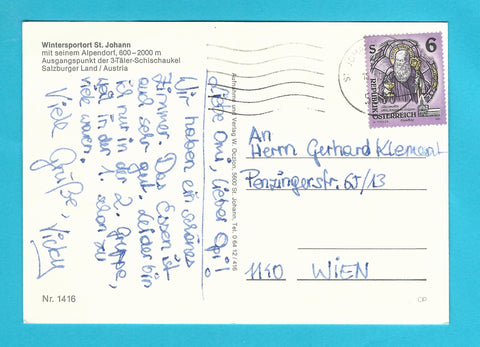 Wintersportort St. Johann
mit seinem Alpendorf, 600–2000 m
Ausgangspunkt der 3-Täler-Schischaukel
Salzburger Land / Austria
Liebe Omi, lieber Opi!
Wir haben ein schönes
Zimmer. Das Essen ist
auch sehr gut. Leider bin
ich nur in der 2. Gruppe,
weil in der 1. schon zu
viele waren.
Viele Grüße,
Vicky
Nr. 1416
5600 St. Johann, Tel. 0 64 12
S 6
REPUBLIK
ÖSTERREICH
An
Herrn Gerhard Klement
Penzingerstr. 65/13
1140 WIEN